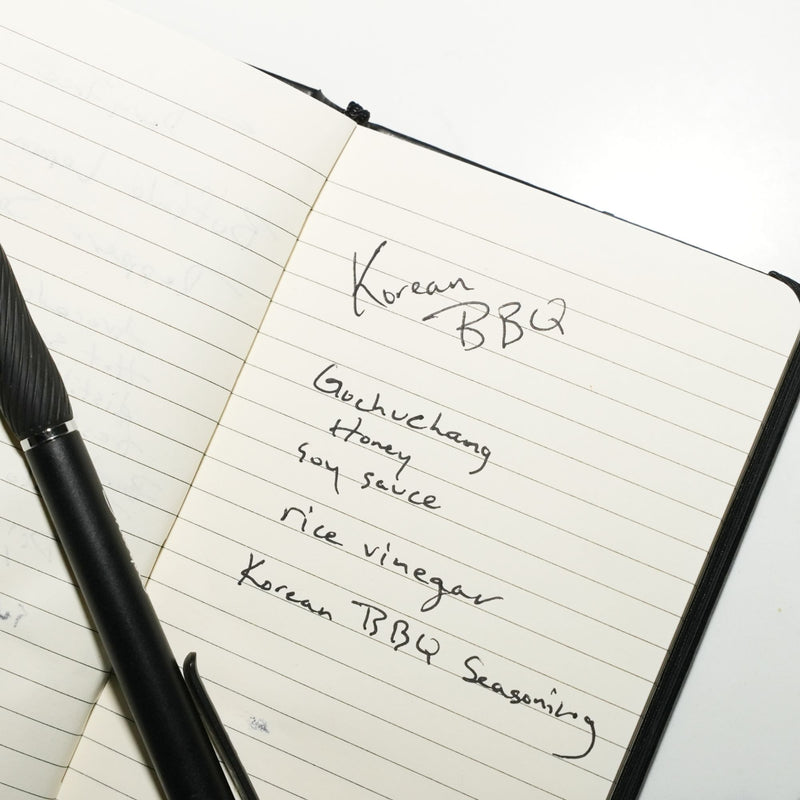 Korean
BBQ
Guchuchang
Honey
soy sauce
rice vinegar
Korean BBQ Seasoning